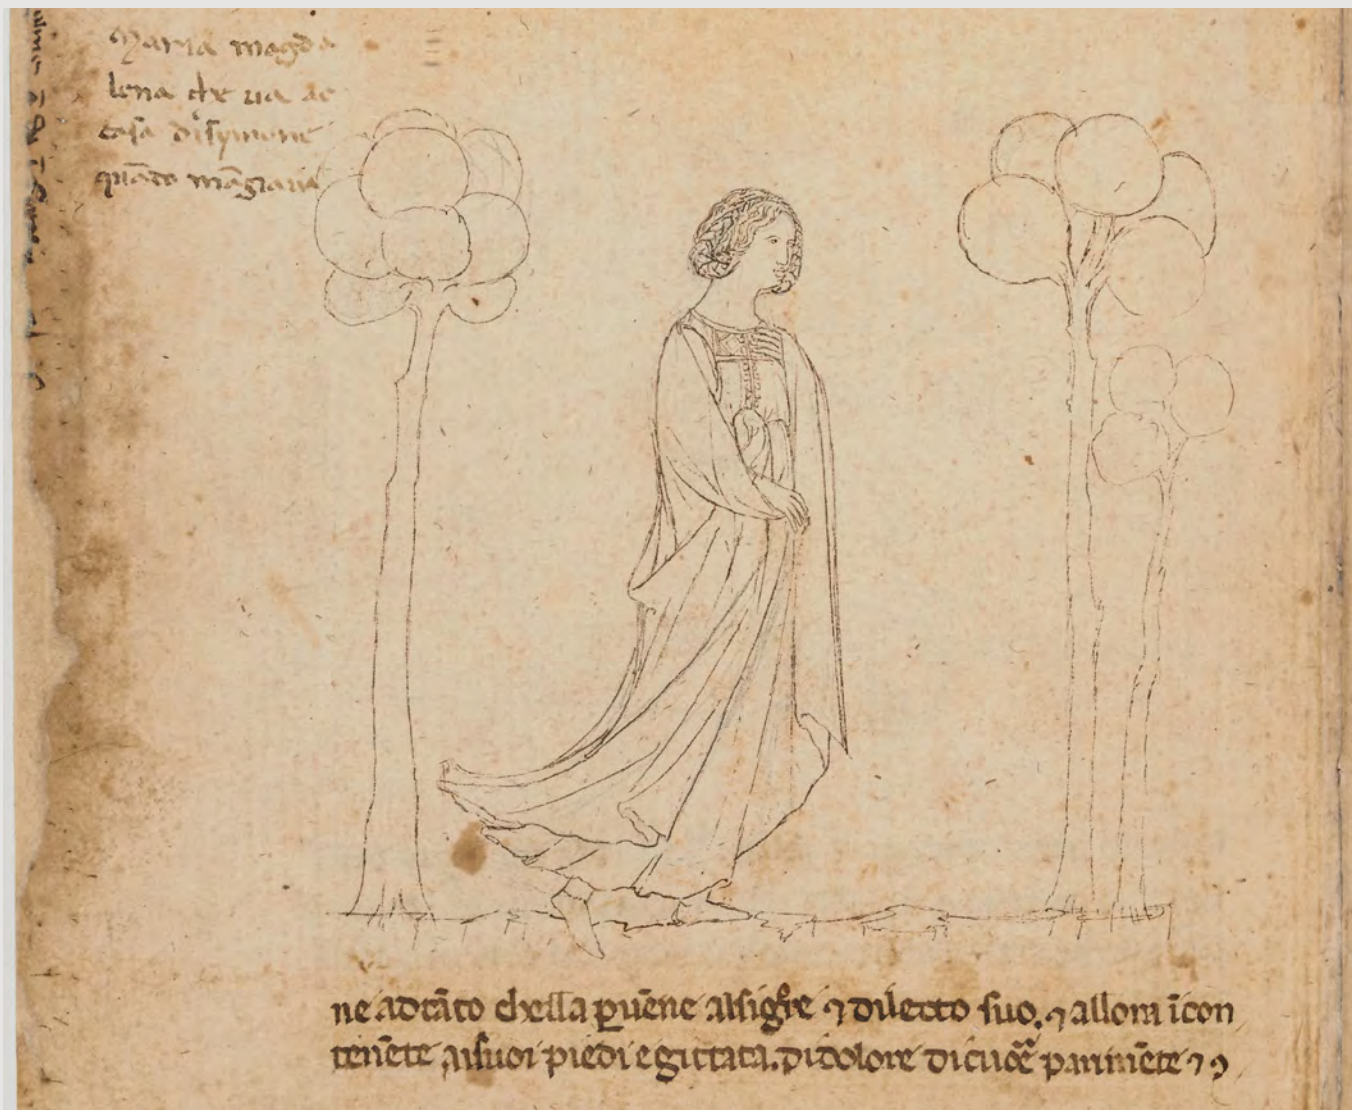 Maria magda
lena che ua ac
casa disymone
quādo māgiaua
ne adtāto chella puēne alsigre ⁊ diletto suo. ⁊ allora īcon
tenēte aisuoi piedi e gittata. di dolore di cuore parimēte ⁊